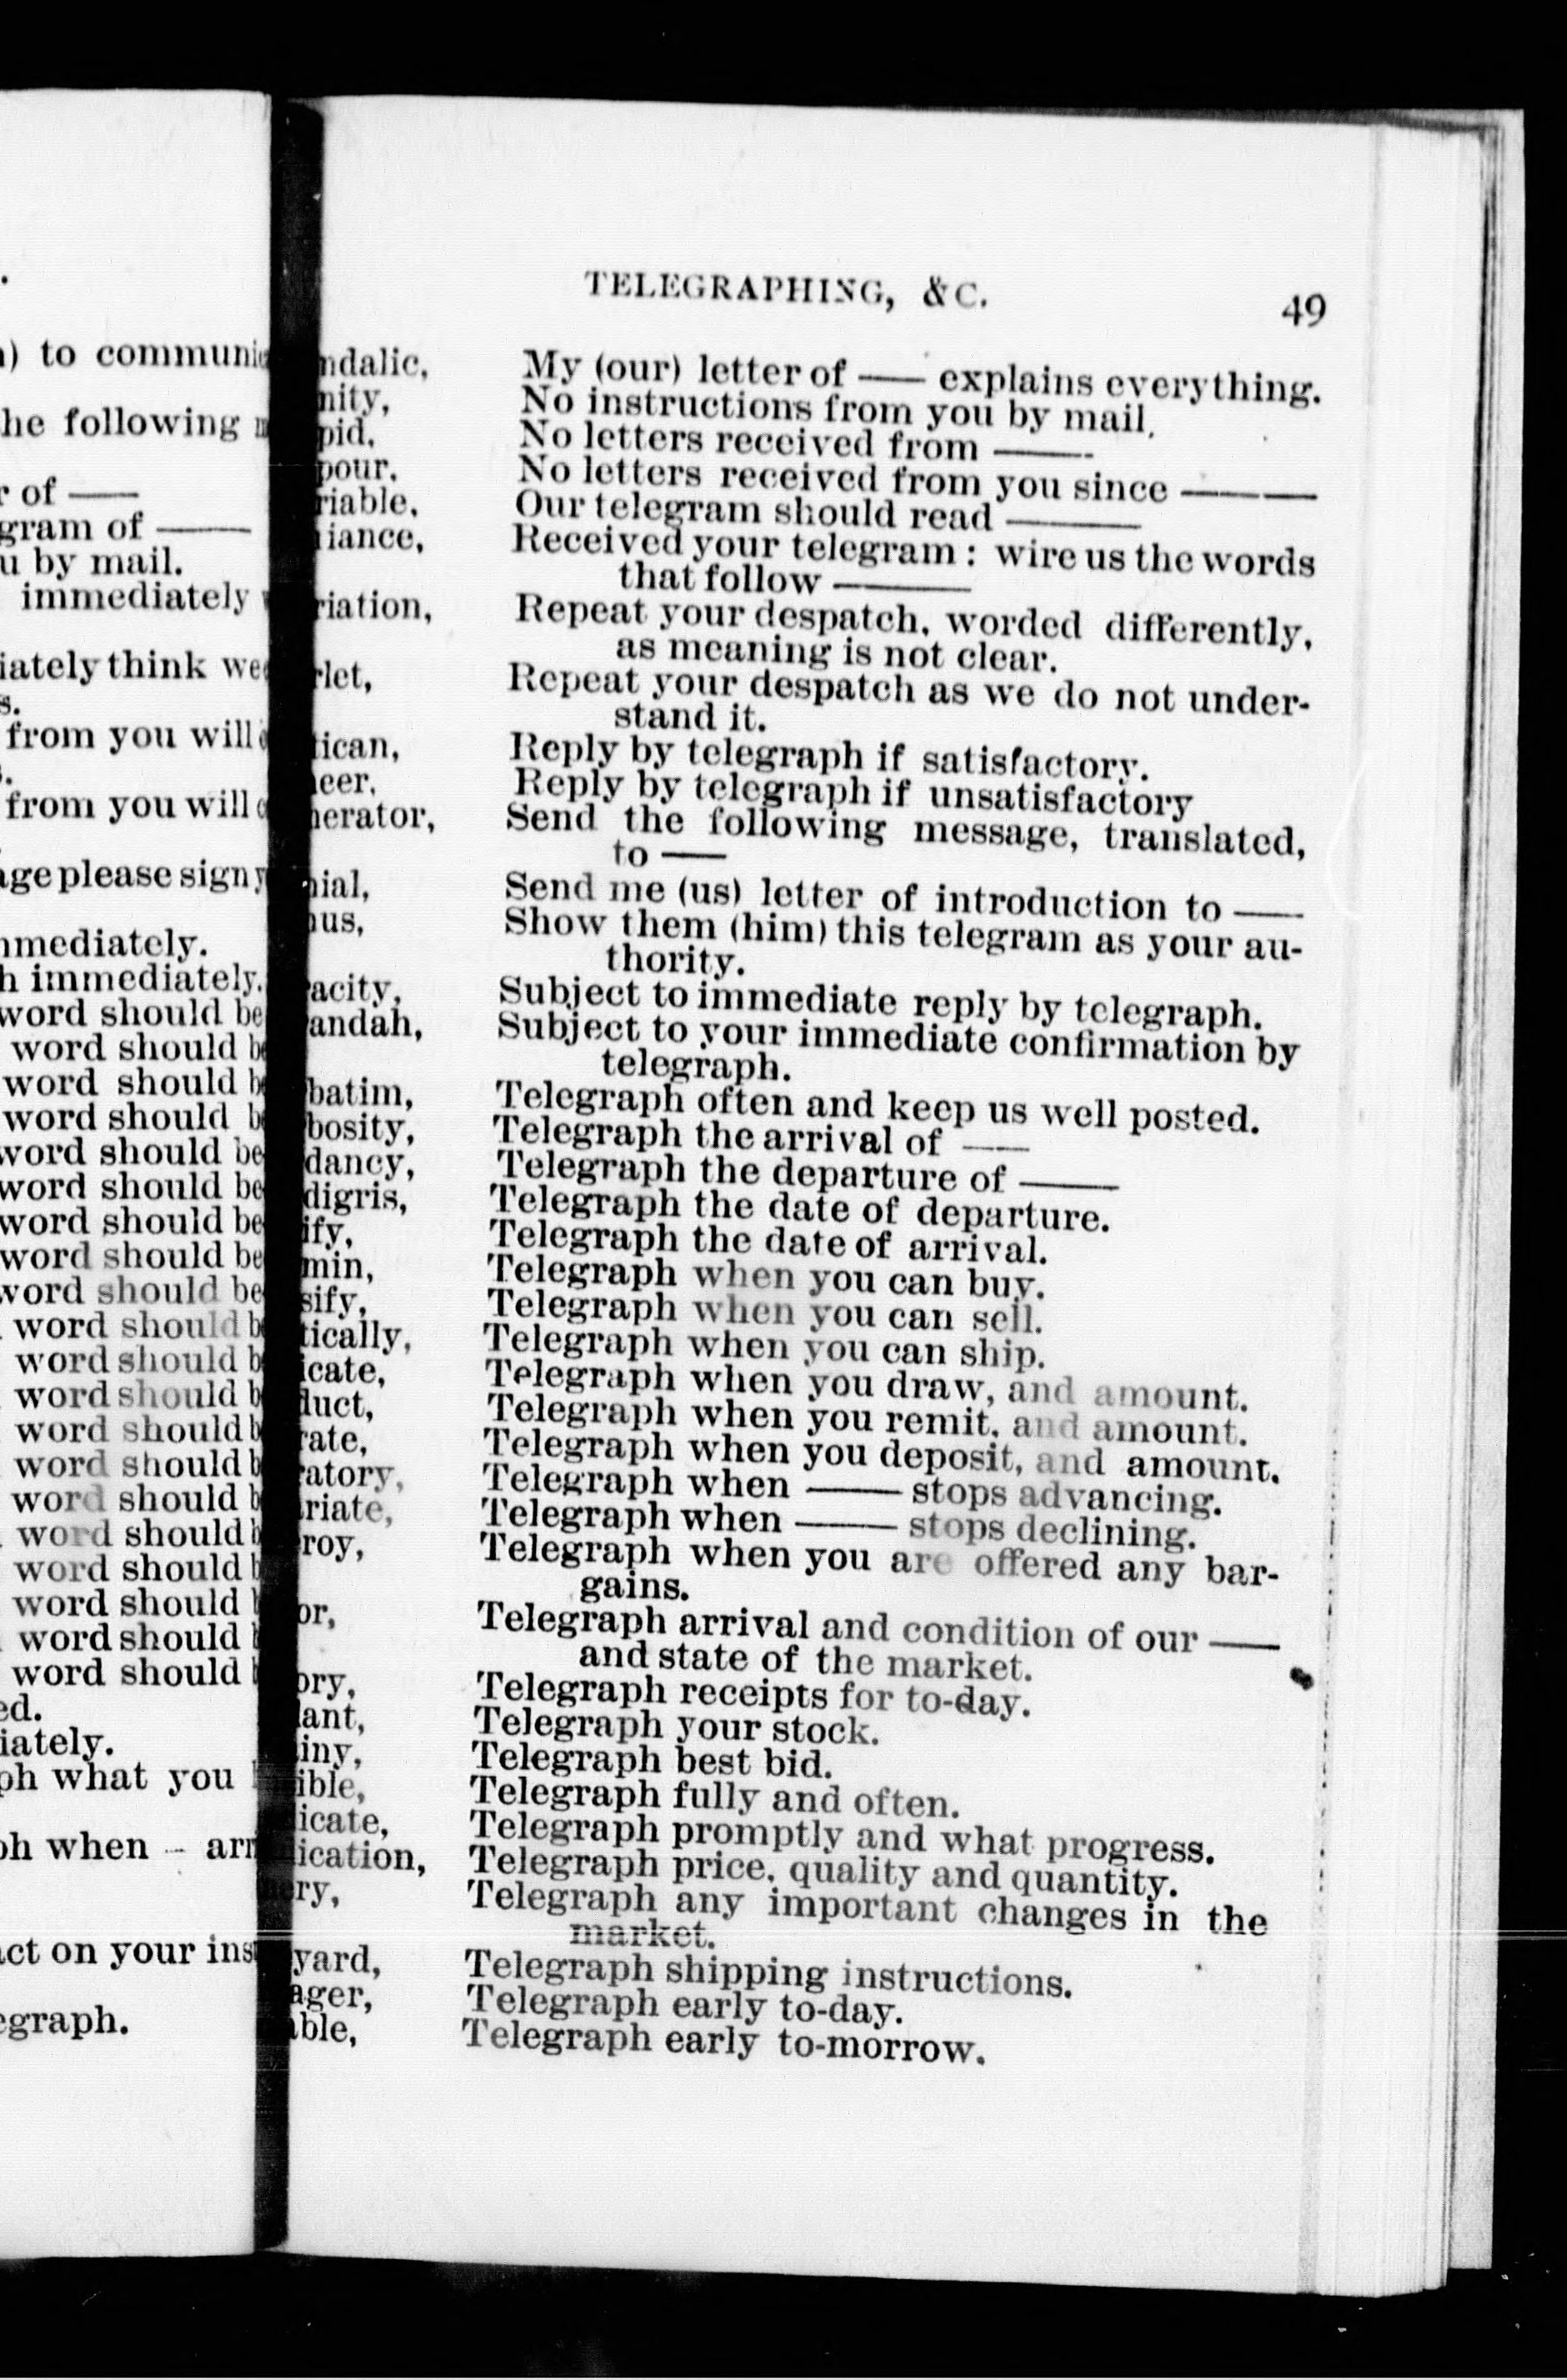 ) to communi
he following
r of ——
gram of ——
u by mail.
immediately
iately think we
s.
from you will
s.
from you will
age please sign y
mmediately.
h immediately.
word should be
word should b
word should b
word should b
word should be
word should be
word should be
word should be
word should be
word should b
word should b
word should b
word should b
word should b
word should b
word should b
word should b
word should
word should
word should
ed.
iately.
ph what you
ph when – arr
act on your ins
egraph.
TELEGRAPHING, &C.
49
ndalic, My (our) letter of —— explains everything.
nity, No instructions from you by mail.
pid, No letters received from ——
pour, No letters received from you since ——
riable, Our telegram should read ——
iance, Received your telegram: wire us the words
that follow ——
riation, Repeat your despatch, worded differently,
as meaning is not clear.
rlet, Repeat your despatch as we do not under-
stand it.
tican, Reply by telegraph if satisfactory.
eer, Reply by telegraph if unsatisfactory
nerator, Send the following message, translated,
to ——
nial, Send me (us) letter of introduction to ——
nus, Show them (him) this telegram as your au-
thority.
acity, Subject to immediate reply by telegraph.
andah, Subject to your immediate confirmation by
telegraph.
batim, Telegraph often and keep us well posted.
bosity, Telegraph the arrival of ——
dancy, Telegraph the departure of ——
digris, Telegraph the date of departure.
ify, Telegraph the date of arrival.
min, Telegraph when you can buy.
sify, Telegraph when you can sell.
tically, Telegraph when you can ship.
icate, Telegraph when you draw, and amount.
duct, Telegraph when you remit, and amount.
rate, Telegraph when you deposit, and amount.
ratory, Telegraph when —— stops advancing.
riate, Telegraph when —— stops declining.
roy, Telegraph when you are offered any bar-
gains.
or, Telegraph arrival and condition of our ——
and state of the market.
ory, Telegraph receipts for to-day.
ant, Telegraph your stock.
iny, Telegraph best bid.
ible, Telegraph fully and often.
icate, Telegraph promptly and what progress.
ication, Telegraph price, quality and quantity.
ry, Telegraph any important changes in the
market.
yard, Telegraph shipping instructions.
ager, Telegraph early to-day.
able, Telegraph early to-morrow.